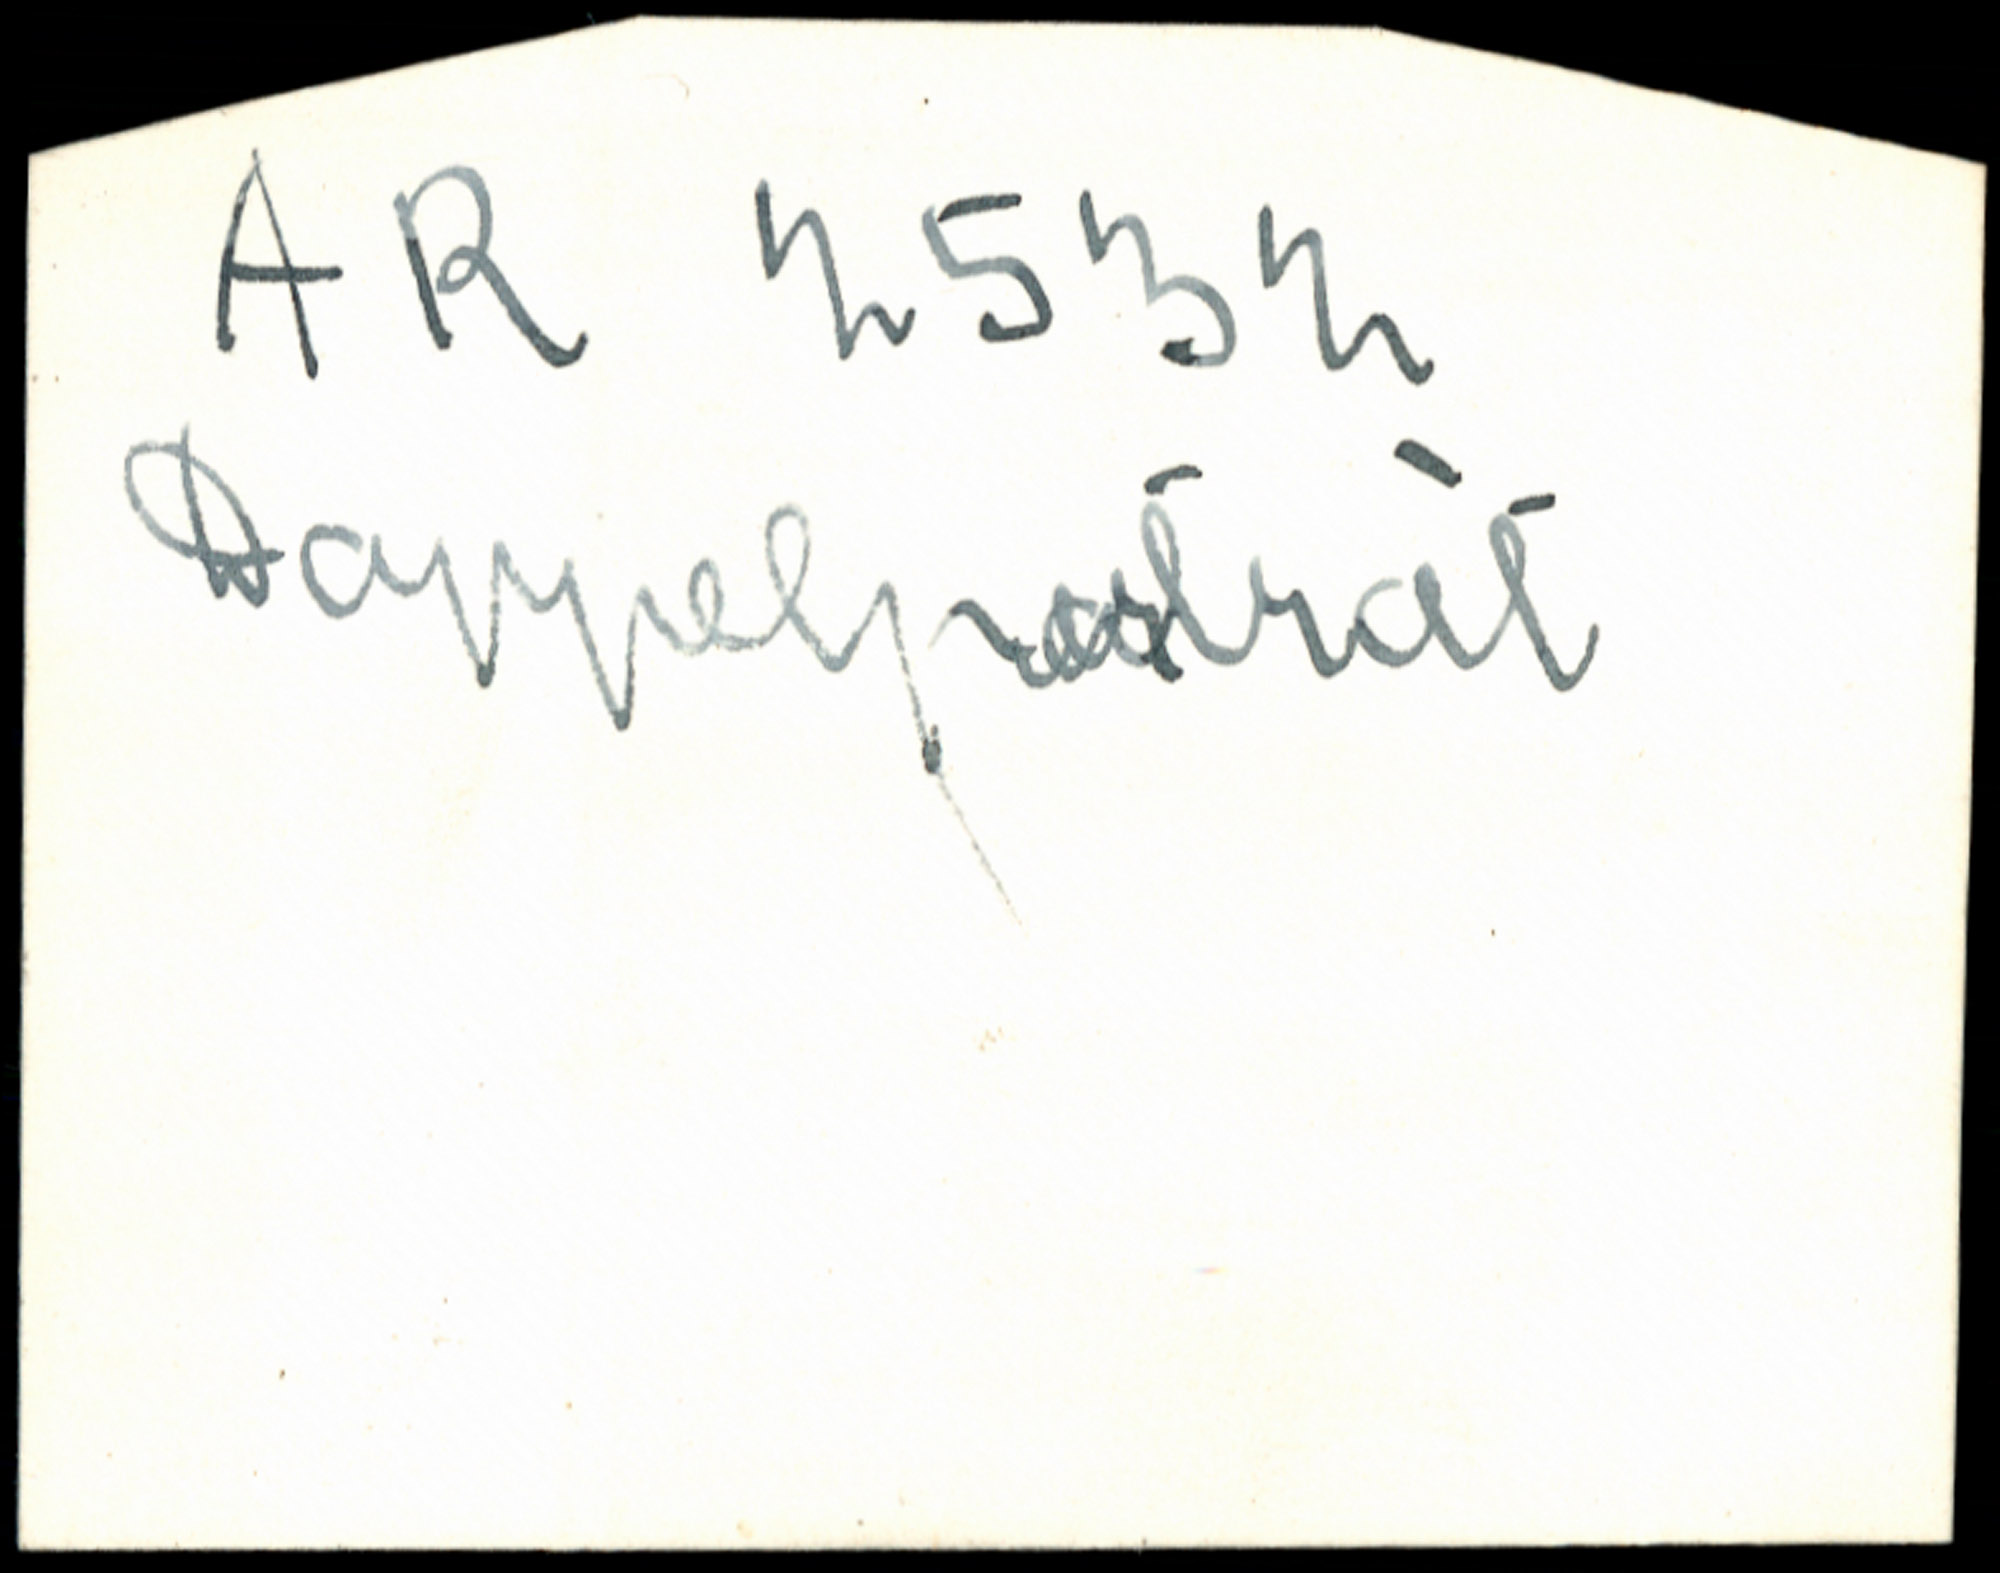 AR 2532
Doppelporträt